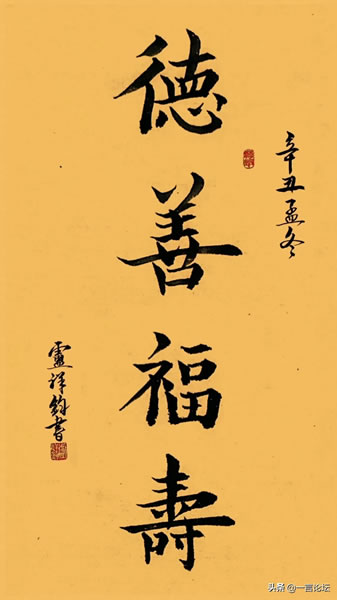 辛丑孟冬
德善福壽
靈祥鈞書
头条 @一言论坛